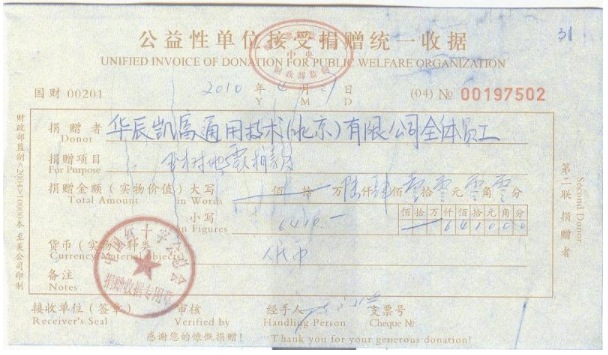 31
公益性单位接受捐赠统一收据
UNIFIED INVOICE OF DONATION FOR PUBLIC WELFARE ORGANIZATION
国财 00201 2010 年 月 日 (04) № 00197502
Y M D
捐赠者 华辰凯马通用技术(北京)有限公司全体员工
Donor
捐赠项目 玉树地震捐款
For Purpose
捐赠金额(实物价值)大写 佰 拾 万 陆仟 佰 拾 元 角 分
Total Amount in Words
小写 6410.—
in Figures
佰拾万仟佰拾元角分
641000
货币(实物)种类 人民币
Currency
备注
Notes
接收单位(签章) 审核 经手人 支票号
Receiver's Seal Verified by Handling Person Cheque №
感谢您的慷慨捐赠! Thank you for your generous donation!
第二联 捐赠者
Second Donor
中国红十字会总会
捐赠收据专用章